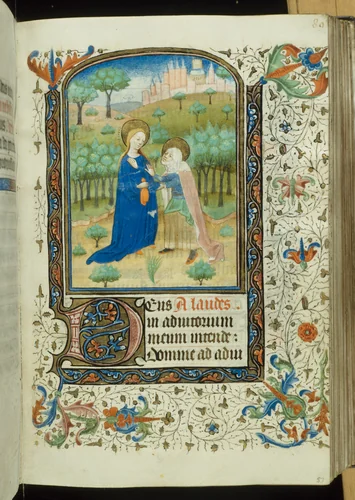 80
Deus A laudes.
in adiutorium
meum intende:
Domine ad adiu